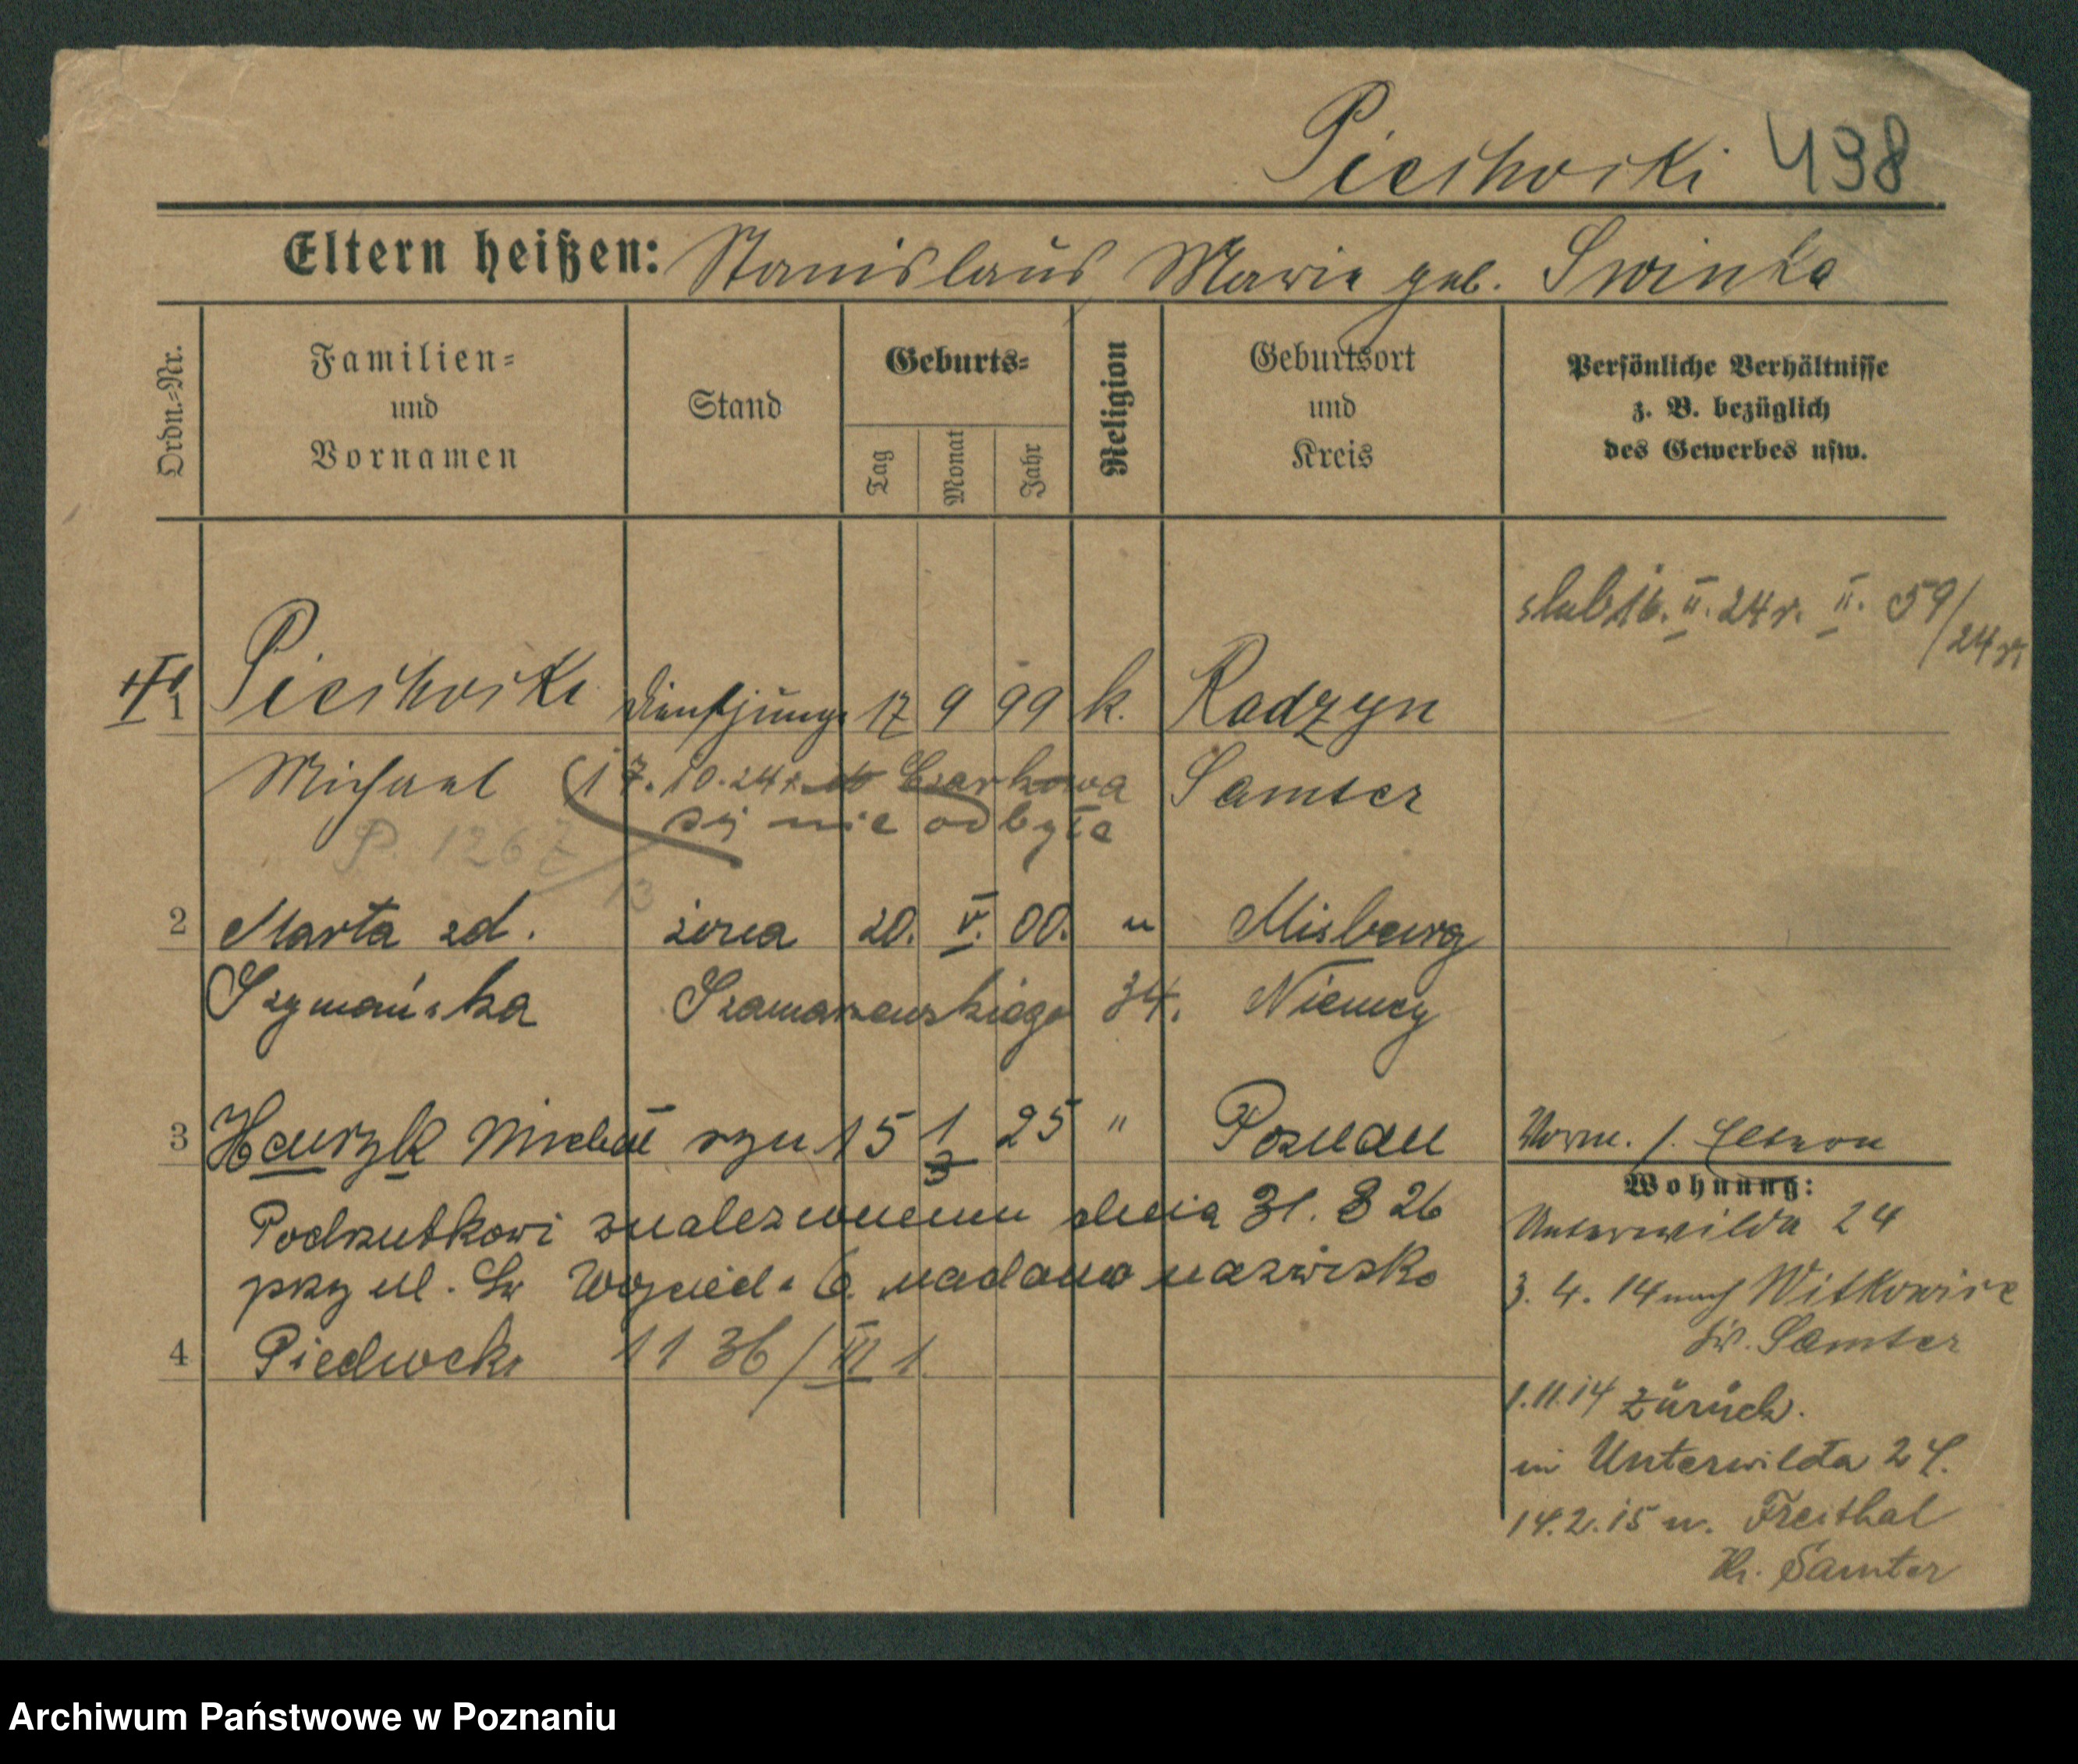 Piechocki 498
Eltern heißen: Stanislaus Marie geb. Swinka
Ordn.-Nr.
Familien- und Vornamen
Stand
Geburts-
Tag
Monat
Jahr
Religion
Geburtsort und Kreis
Persönliche Verhältnisse z. B. bezüglich des Gewerbes usw.
ślub 16. II. 24 r. II. 59/24 r.
1 Piechocki Dienstjunge 17 9 99 k. Radzyn
Michael (17.10.24 r. do Czarkowa Samter
się nie odbyła
P. 1267/13
2 Marta zd. żona 20. V. 00. " Misburg
Szymańska Szamarzewskiego 34. Niemcy
3 Henryk Michał syn 15 1 25 " Poznań Worm. s. Eltern
3
Wohnung:
Podrzutkowi znalezionemu dnia 31. 8 26
przy ul. Św Wojciech 6 nadano nazwisko
4 Piechocki 11 36/III 1.
Unterwilda 24
3. 4. 14 nach Witkowice
Kr. Samter
1.11.14 zurück.
in Unterwilda 24.
14.2.15 n. Freithal
Kr. Samter
Archiwum Państwowe w Poznaniu